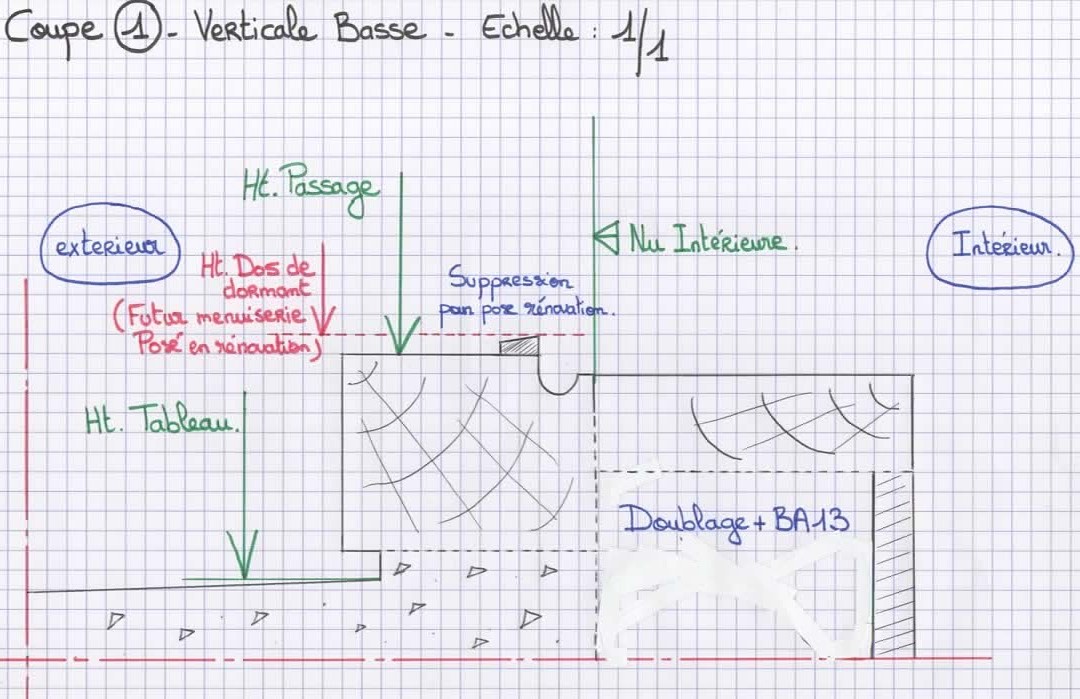 Coupe 1 - Verticale Basse - Echelle : 1/1
Ht. Passage
exterieur
Nu Intérieure.
Intérieur.
Ht. Dos de
dormant
(Futur menuiserie
Posé en rénovation)
Suppression
pour pose rénovation.
Ht. Tableau.
Doublage + BA13